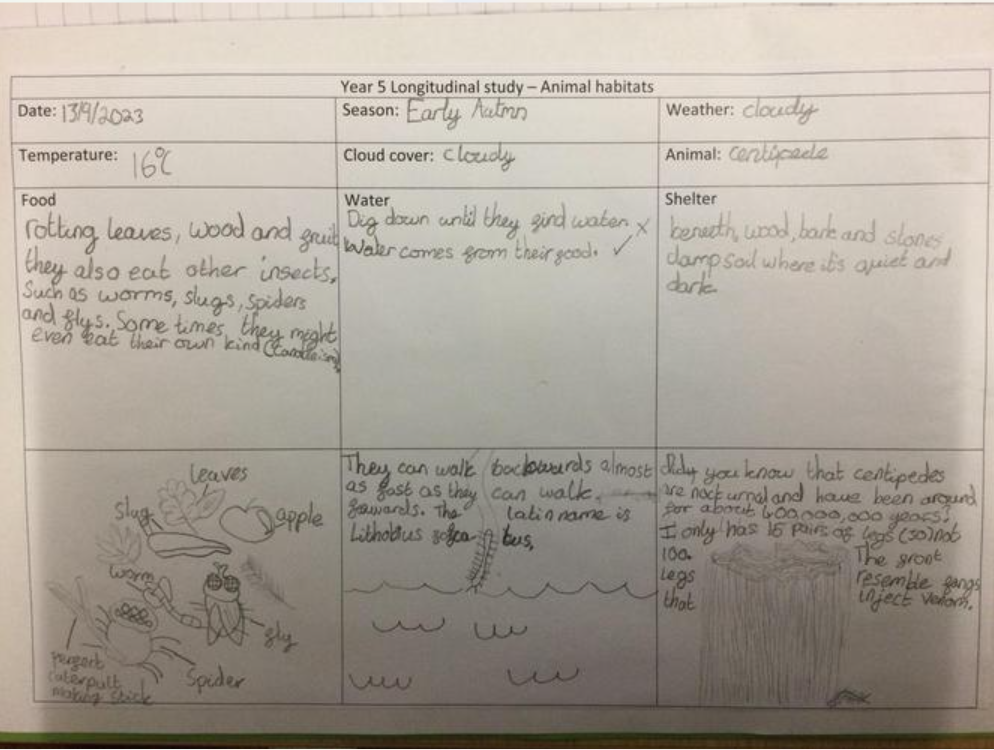 Year 5 Longitudinal study – Animal habitats
Date: 13/9/2023
Season: Early Autmn
Weather: cloudy
Temperature: 16°C
Cloud cover: cloudy
Animal: centipede
Food
rotting leaves, wood and fruit
they also eat other insects,
Such as worms, slugs, spiders
and flys. Some times, they might
even eat their own kind
Water
Dig down until they find water. x
Water comes from their food. ✓
Shelter
beneeth, wood, bark and stones,
damp soil where it's quiet and
dark.
leaves
Slug
apple
worm
fly
perfect
caterpult
making stick
Spider
They can walk backwards almost
as fast as they can walk
fowards. The latin name is
Lithobius
Didy you know that centipedes
are nocturnal and have been around
for about 400,000,000 years?
I only has 15 pairs of legs (30) not
100. The front
Legs resemble fangs
that inject venom.